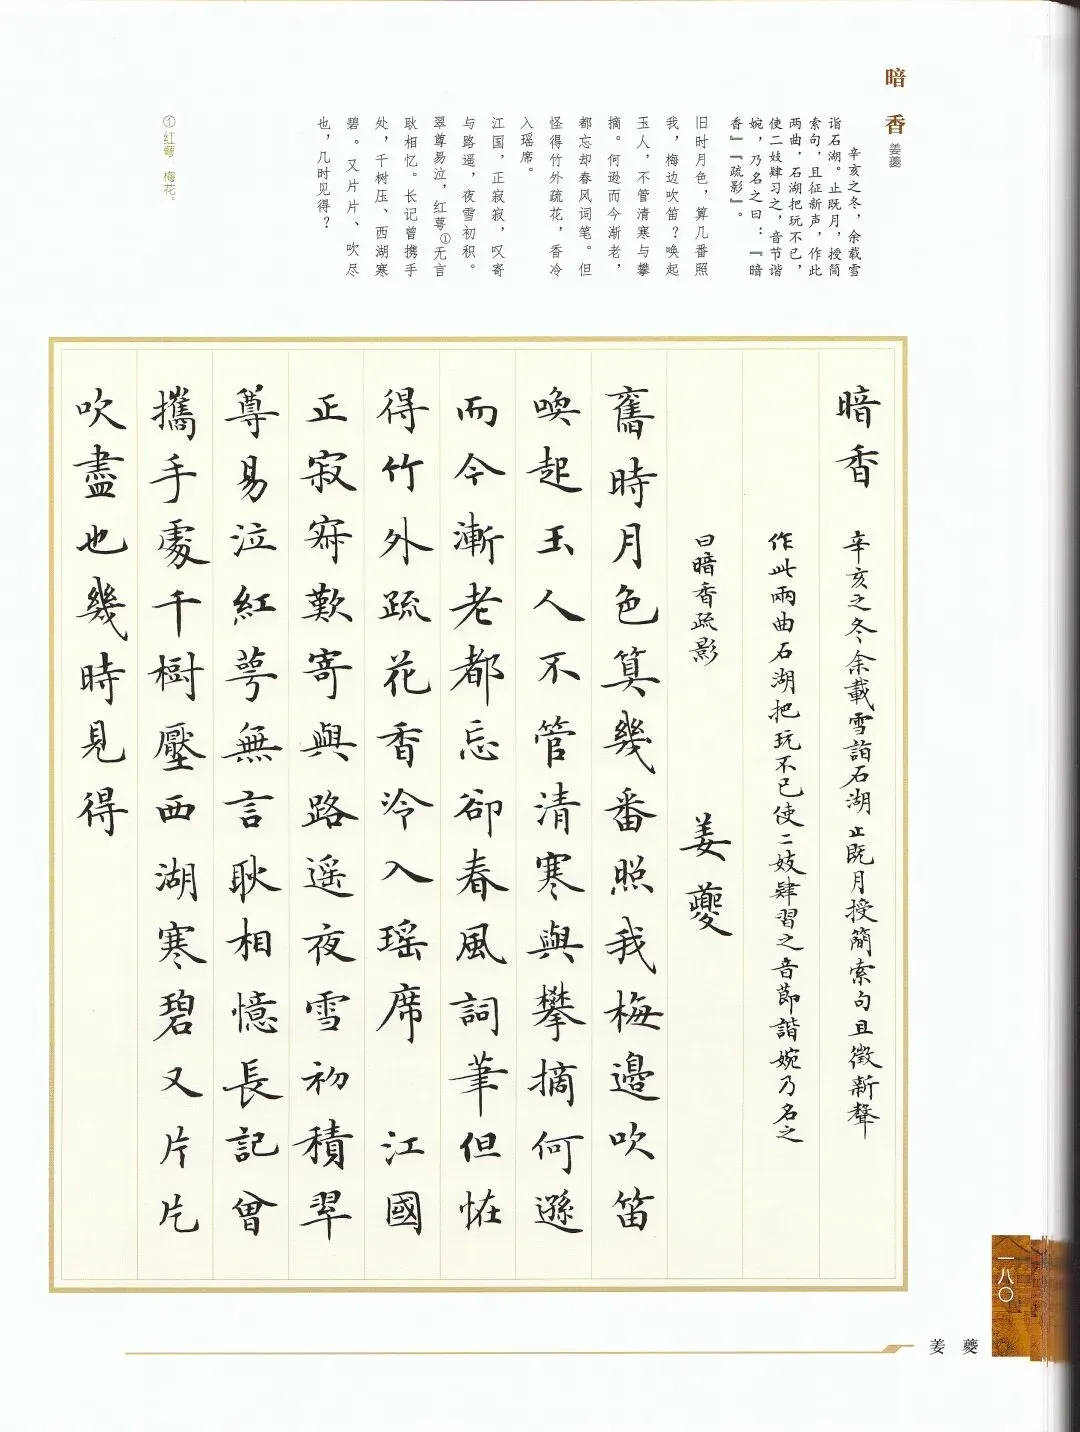 暗香
姜夔
辛亥之冬，余载雪
诣石湖。止既月，授简
索句，且征新声，作此
两曲，石湖把玩不已，
使二妓肆习之，音节谐
婉，乃名之曰：『暗
香』『疏影』。
旧时月色，算几番照
我，梅边吹笛？唤起
玉人，不管清寒与攀
摘。何逊而今渐老，
都忘却春风词笔。但
怪得竹外疏花，香冷
入瑶席。
江国，正寂寂，叹寄
与路遥，夜雪初积。
翠尊易泣，红萼①无言
耿相忆。长记曾携手
处，千树压、西湖寒
碧。又片片、吹尽
也，几时见得？
①红萼 梅花。
暗香 辛亥之冬余載雪詣石湖止既月授簡索句且徵新聲
作此兩曲石湖把玩不已使二妓肆習之音節諧婉乃名之
曰暗香疏影 姜夔
舊時月色算幾番照我梅邊吹笛
喚起玉人不管清寒與攀摘何遜
而今漸老都忘卻春風詞筆但恠
得竹外疏花香冷入瑶席 江國
正寂寂歎寄與路遥夜雪初積翠
尊易泣紅萼無言耿相憶長記曾
攜手處千樹壓西湖寒碧又片片
吹盡也幾時見得
一八〇
姜夔